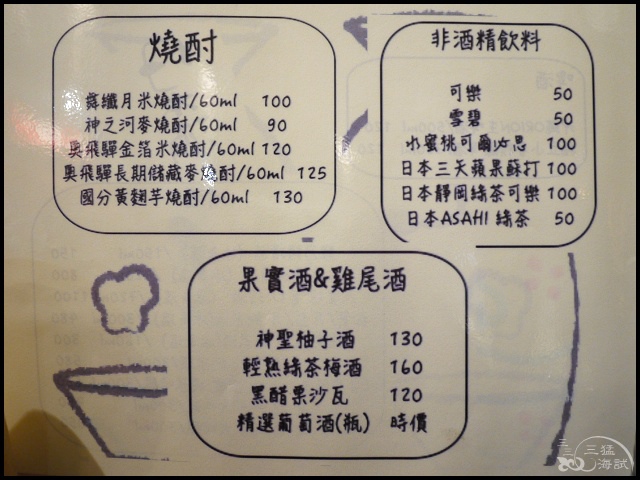 燒酎
舞纖月米燒酎/60ml 100
神之河麥燒酎/60ml 90
奧飛驒金箔米燒酎 120
奧飛驒長期儲藏麥燒酎 125
國分黃麴芋燒酎/60ml 130
非酒精飲料
可樂 50
雪碧 50
水蜜桃可爾必思 100
日本三矢蘋果蘇打 100
日本靜岡綠茶可樂 100
日本ASAHI 綠茶 50
果實酒&雞尾酒
神聖柚子酒 130
輕熟綠茶梅酒 160
黑醋栗沙瓦 120
精選葡萄酒(瓶) 時價
三猛
海試